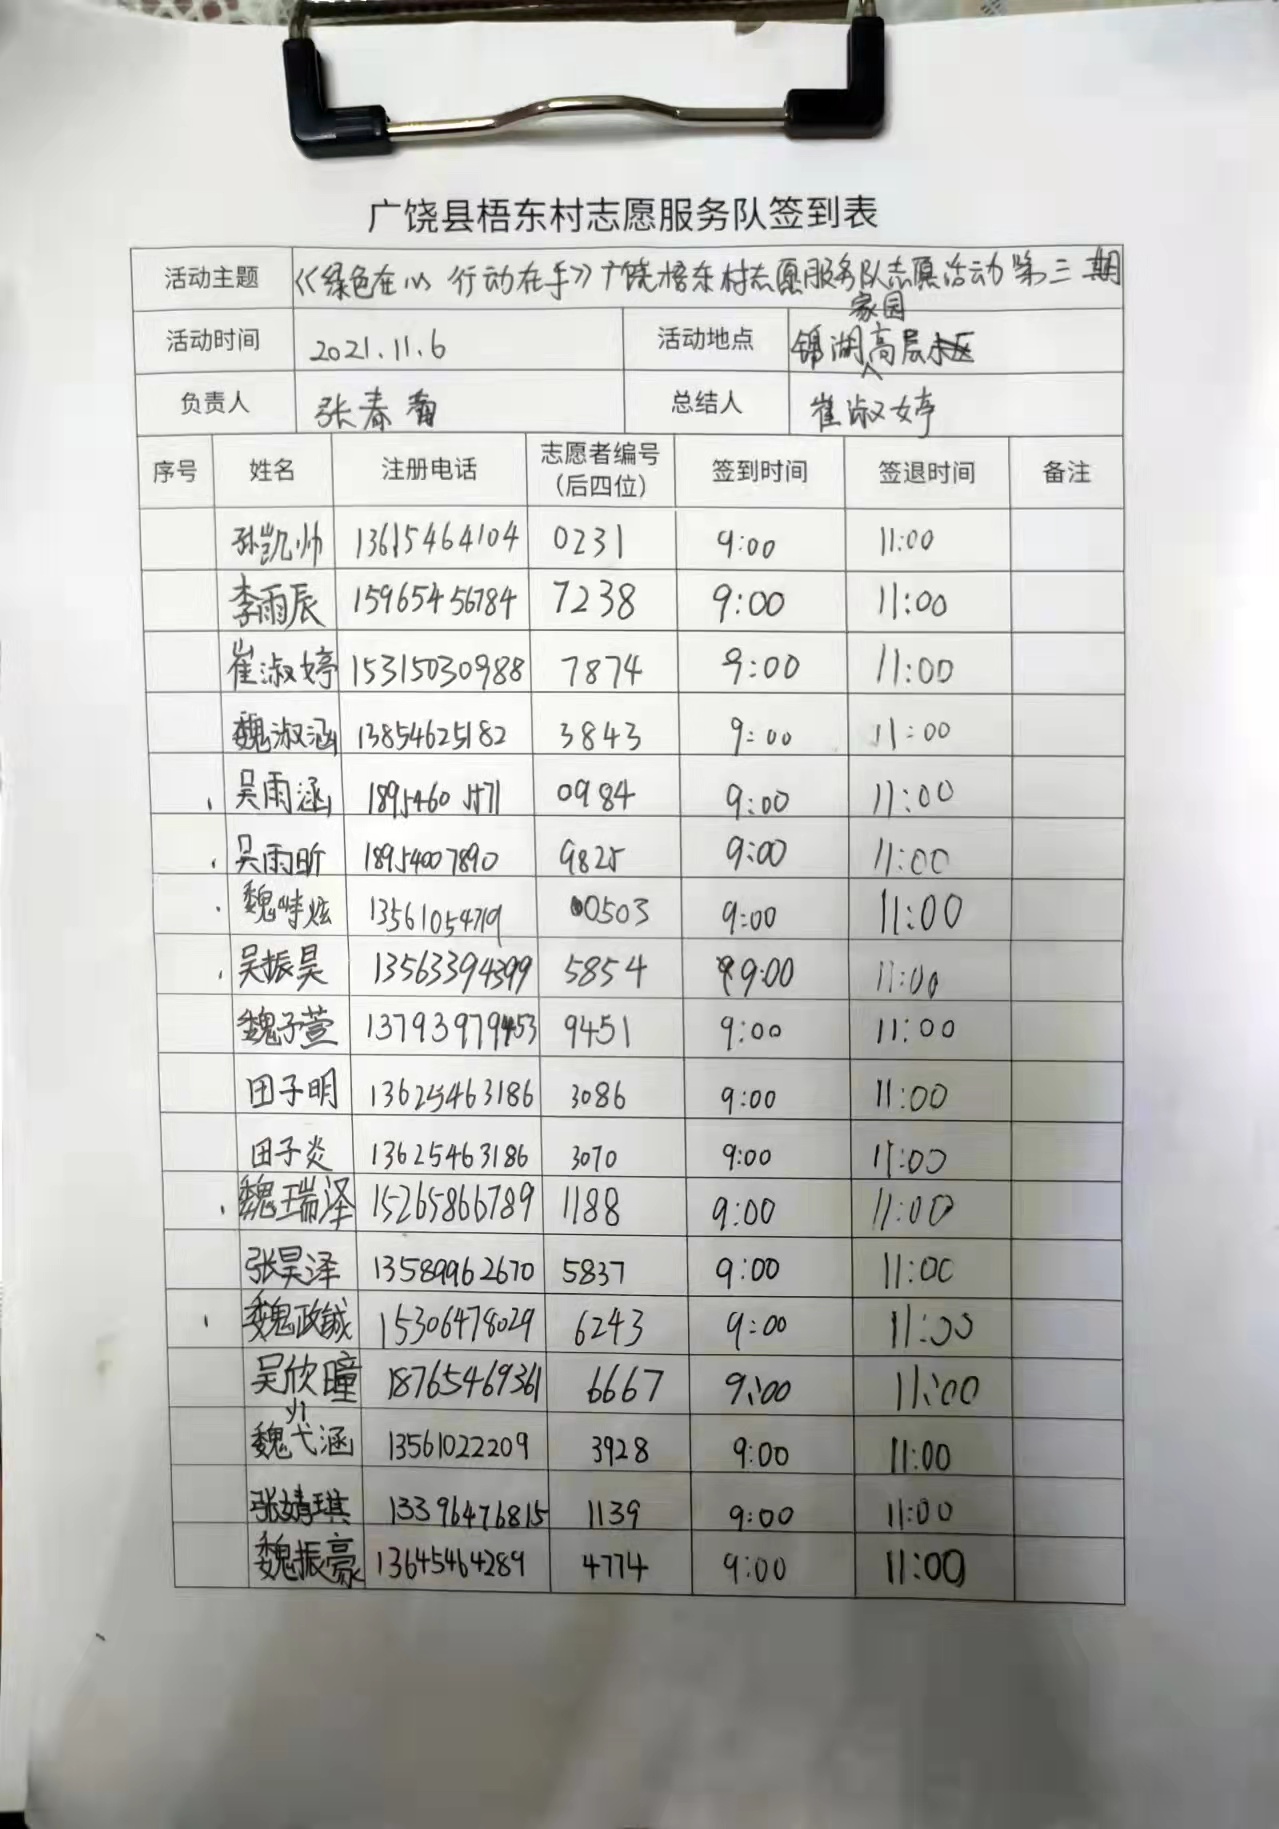 广饶县梧东村志愿服务队签到表
活动主题 《绿色在心 行动在手》广饶梧东村志愿服务队志愿活动第三期
活动时间 2021.11.6 活动地点 锦湖家园高层
负责人 张春 总结人 崔淑婷
序号 姓名 注册电话 志愿者编号（后四位） 签到时间 签退时间 备注
孙凯帅 13615464104 0231 9:00 11:00
李雨辰 15965456784 7238 9:00 11:00
崔淑婷 15315030988 7874 9:00 11:00
魏淑涵 13854625182 3843 9:00 11:00
吴雨涵 18954605571 0984 9:00 11:00
吴雨昕 18954007890 9825 9:00 11:00
魏 炫 13561054719 0503 9:00 11:00
吴振昊 13563394399 5854 9:00 11:00
魏子萱 13793979453 9451 9:00 11:00
田子明 13625463186 3086 9:00 11:00
田子炎 13625463186 3070 9:00 11:00
魏瑞泽 15265866789 1188 9:00 11:00
张昊泽 13589962670 5837 9:00 11:00
魏政诚 15306478029 6243 9:00 11:00
吴欣瞳 18765469361 6667 9:00 11:00
魏 涵 13561022209 3928 9:00 11:00
张婧琪 13396476815 1139 9:00 11:00
魏振豪 13645464289 4774 9:00 11:00